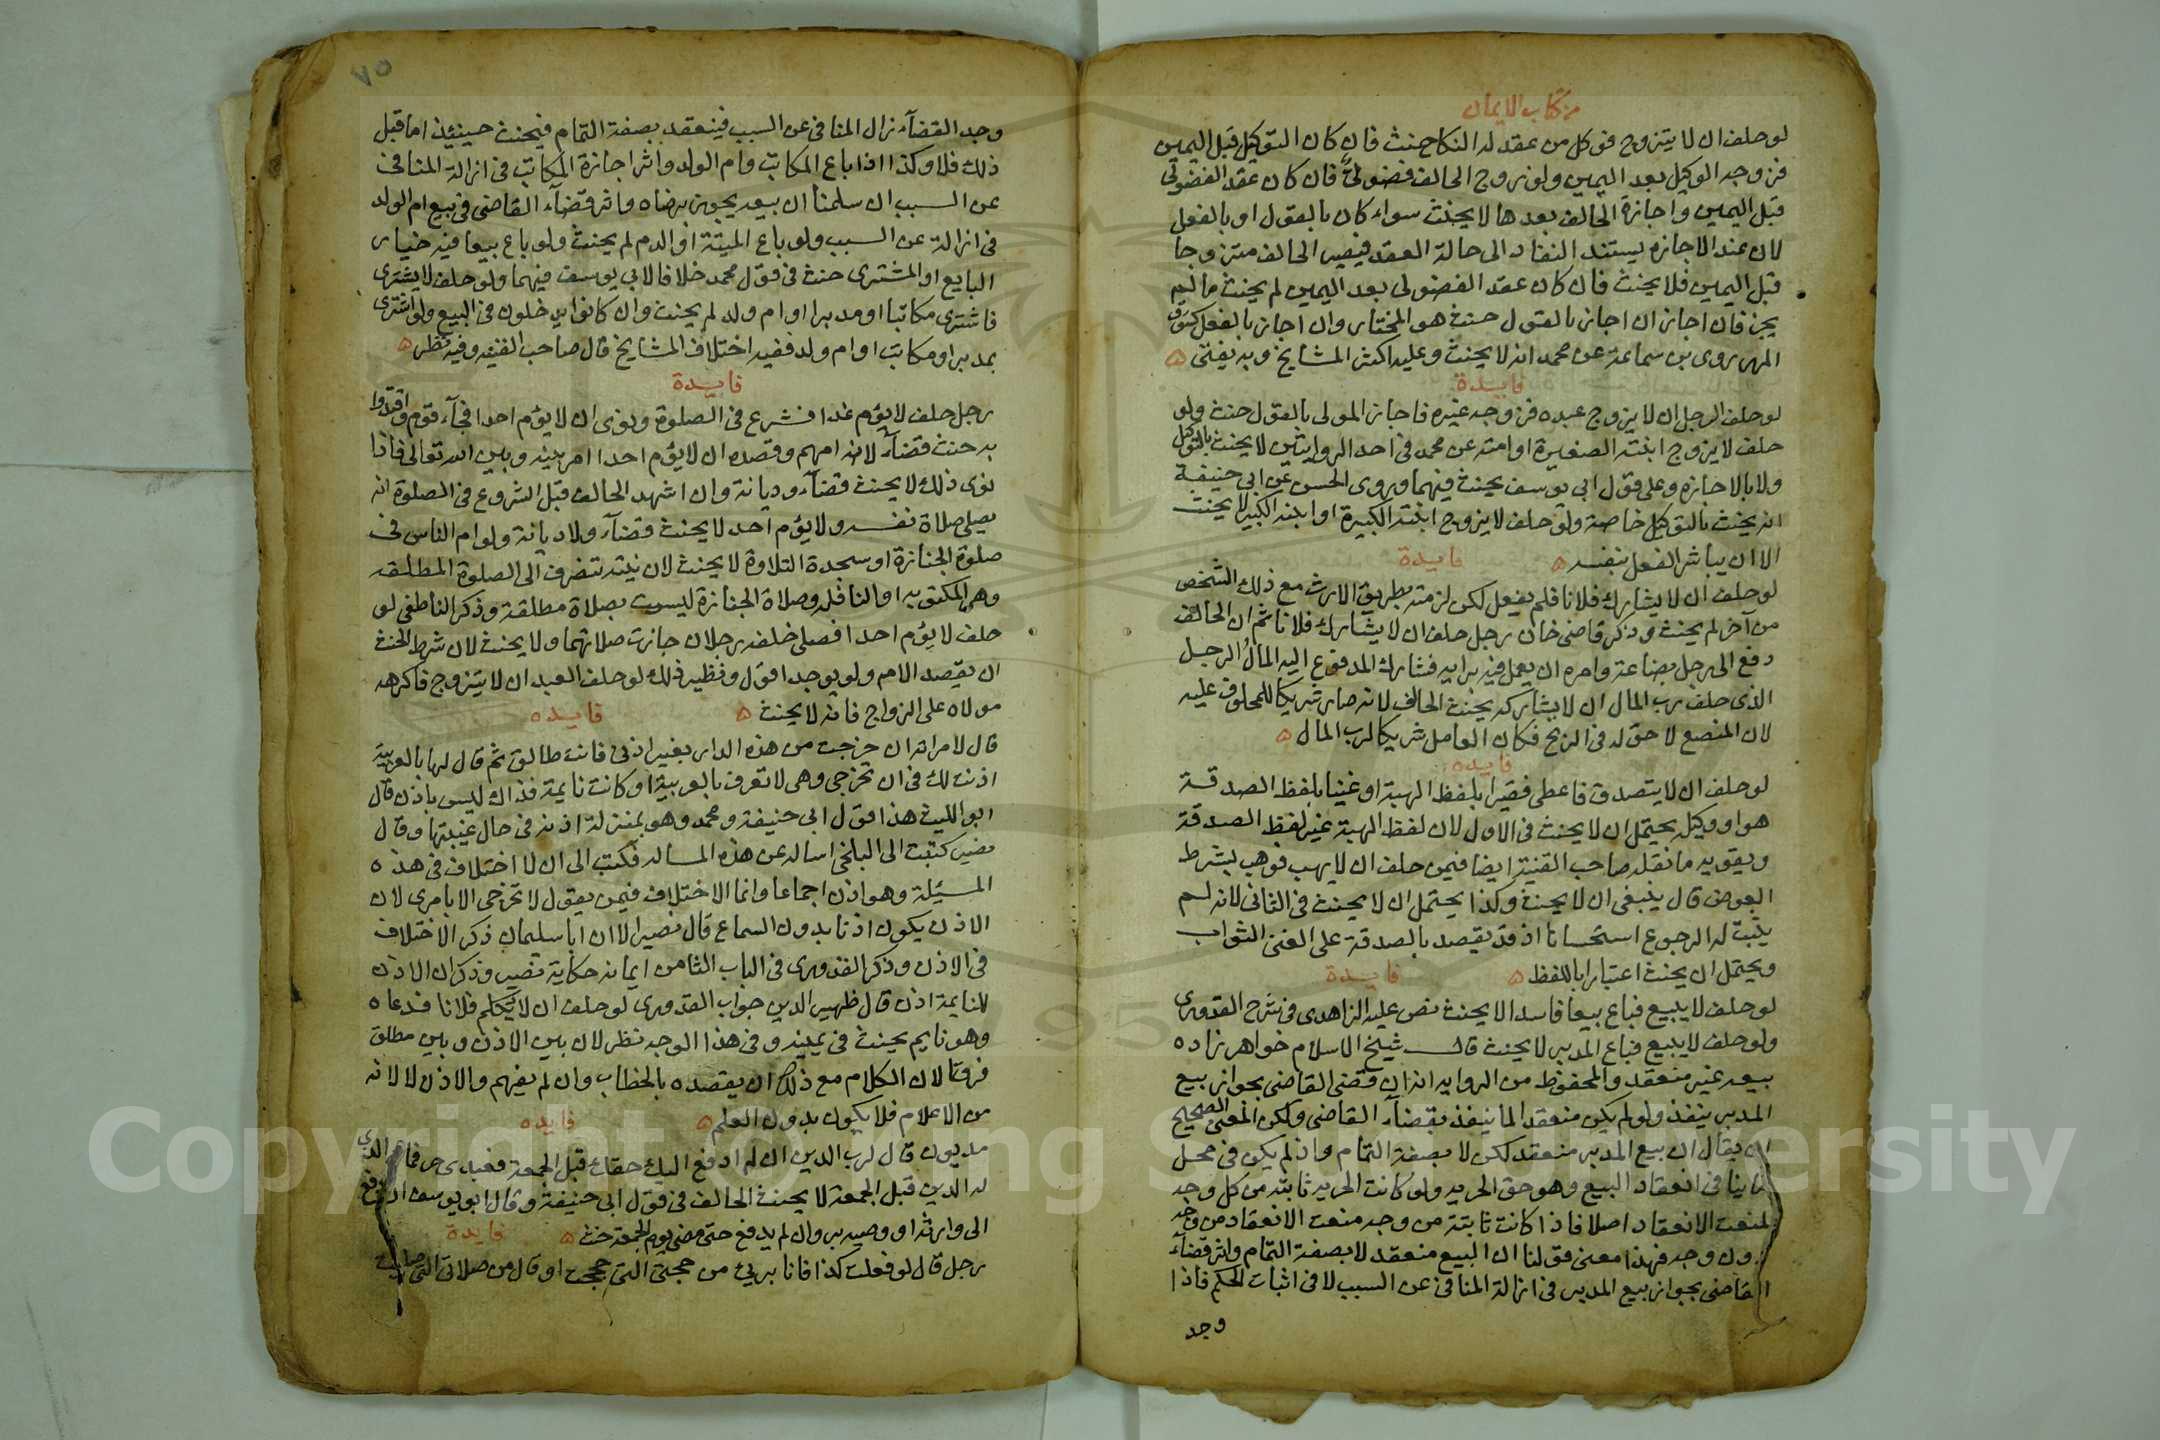 من كتاب الايمان
لو حلف ان لا يتزوج فوكل من عقد له النكاح حنث فان كان التوكيل قبل اليمين
فزوجه الوكيل بعد اليمين ولو زوج الحالف فضولي فان كان عقد الفضولي
قبل اليمين واجازة الحالف بعدها لا يحنث سواء كان بالقول او بالفعل
لان عند الاجازه يستند النفاد الى حالة العقد فيصير الحالف متزوجا
قبل اليمين فلا يحنث فان كان عقد الفضولي بعد اليمين لم يحنث ما لم
يجز فان اجاز ان اجاز بالقول حنث هو المختار وان اجاز بالفعل كسوق
المهر روى بن سماعة عن محمد انه لا يحنث وعليه اكثر المشايخ وبه يفتى ه
فايدة
لو حلف الرجل ان لا يزوج عبده فزوجه غيره فاجاز المولى بالقول حنث ولو
حلف لا يزوج ابنته الصغيرة او امته عن محمد في احد الروايتين لا يحنث بالتوكيل
ولا بالاجازه وعلى قول ابي يوسف يحنث فيهما وروى الحسن عن ابي حنيفة
انه يحنث بالتوكيل خاصة ولو حلف لا يزوج ابنته الكبيرة او ابنه الكبير لا يحنث
الا ان يباشر الفعل بنفسه ه فايدة
لو حلف ان لا يشارك فلانا فلم يفعل لكن لزمته بطريق الارث مع ذلك الشخص
من آخر لم يحنث وذكر قاضي خان رجل حلف ان لا يشارك فلانا ثم ان الحالف
دفع الى رجل بضاعة وامره ان يعمل فيه برايه فشارك المدفوع اليه المال الرجل
الذي حلف رب المال ان لا يشاركه يحنث الحالف لانه صار شريكا للمحلوف عليه
لان المبضع لا حق له في الربح فكان العامل شريكا لرب المال ه
فايده
لو حلف ان لا يتصدق فاعطى فقيرا بلفظ الهبة او غنيا بلفظ الصدقة
هو او وكيله يحتمل ان لا يحنث في الاول لان لفظ الهبة غير لفظ الصدقة
ويقويه ما نقله صاحب القنية ايضا فيمن حلف ان لا يهب فوهب بشرط
العوض قال ينبغي ان لا يحنث وكذا يحتمل ان لا يحنث في الثاني لانه لم
يثبت له الرجوع استحسانا اذ قد يقصد بالصدقة على الغني الثواب
ويحتمل ان يحنث اعتبارا باللفظ ه فايدة
لو حلف لا يبيع فباع بيعا فاسدا لا يحنث نص عليه الزاهدي في شرح القدوري
ولو حلف لا يبيع فباع المدبر لا يحنث قال شيخ الاسلام خواهر زاده
بيعه غير منعقد والمحفوظ من الروايه انه ان قضى القاضي بجواز بيع
المدبر ينفذ ولو لم يكن منعقدا لما ينفذ بقضآء القاضي ولكن المعنى الصحيح
ان يقال ان بيع المدبر منعقد لكن لا بصفة التمام واذ لم يكن في محل
ما ينافي انعقاد البيع وهو حق الحريه ولو كانت الحريه ثابته من كل وجه
لمنعت الانعقاد اصلا فاذا كانت ثابتة من وجه منعت الانعقاد من وجه
دون وجه فهذا معنى قولنا ان البيع منعقد لا بصفة التمام واثر قضآء
القاضي بجواز بيع المدبر في ازالة المنافي عن السبب لا في اثبات الحكم فاذا
وجد
٧٥
وجد القضآء زال المنافي عن السبب فينعقد بصفة التمام فيحنث حينئذ اما قبل
ذلك فلا وكذا اذا باع المكاتب وام الولد واثر اجازة المكاتب في ازالة المنافي
عن السبب ان سلمنا ان بيعه يجوز برضاه واثر قضآء القاضي في بيع ام الولد
في ازالة عن السبب ولو باع الميتة او الدم لم يحنث ولو باع بيعا فيه خيار
البايع او المشتري حنث في قول محمد خلافا لابي يوسف فيهما ولو حلف لا يشتري
فاشترى مكاتبا او مدبرا او ام ولد لم يحنث وان كانوا يدخلون في البيع ولو اشترى
بمدبر او مكاتب او ام ولد ففيه اختلاف المشايخ قال صاحب القنيه وفيه نظر ه
فايدة
رجل حلف لا يؤم غدا فشرع في الصلوة ونوى ان لا يؤم احدا فجآء قوم واقتدوا
به حنث قضآء لانه امهم وقصده ان لا يؤم احدا امر بينه وبين الله تعالى فاذا
نوى ذلك لا يحنث قضآء وديانة وان اشهد الحالف قبل الشروع في الصلوة انه
يصلي صلاة نفسه ولا يؤم احد لا يحنث قضآء ولا ديانة ولو ام الناس في
صلوة الجنازة او سجدة التلاوة لا يحنث لان نيته تنصرف الى الصلوة المطلقه
وهي المكتوبه او النافله وصلاة الجنازة ليست بصلاة مطلقة وذكر الناطفي لو
حلف لا يؤم احدا فصلى خلفه رجلان جازت صلاتهما ولا يحنث لان شرط الحنث
ان يقصد الام ولو يوجد اقول ونظير ذلك لو حلف العبد ان لا يتزوج فاكرهه
مولاه على الزواج فانه لا يحنث ه فايده
قال لامراته ان خرجت من هذه الدار بغير اذني فانت طالق ثم قال لها بالعربية
اذنت لك في ان تخرجي وهي لا تعرف بالعربية او كانت نايمة فذاك ليس باذن قال
ابو الليث هذا قول ابي حنيفة ومحمد وهو بمنزلة اذنه في حال غيبتها وقال
نصير كتبت الى البلخي اساله عن هذه المساله فكتب الى ان لا اختلاف في هذه
المسئلة وهو اذن اجماعا وانما الاختلاف فيمن يقول لا تخرجي الا بامري لان
الاذن يكون اذنا بدون السماع قال نصير الا ان ابا سليمان ذكر الاختلاف
في الاذن وذكر القدوري في الباب الثامن ايمانه حكاية نصير وذكر ان الاذن
للنايمة اذن قال ظهير الدين جواب القدوري لو حلف ان لا يتكلم فلانا فدعاه
وهو نايم يحنث في يمينه وفي هذا الوجه نظر لان بين الاذن وبين مطلق
فرقا لان الكلام مع ذلك ان يقصده بالخطاب وان لم يفهم والاذن لا لانه
من الاعلام فلا يكون بدون العلم ه فايده
مديون قال لرب الدين ان لم ادفع اليك حقك قبل الجمعة فعبدي حر فمات الذي
له الدين قبل الجمعة لا يحنث الحالف في قول ابي حنيفة وقال ابو يوسف ان دفع
الى وارثه او وصيه بر وان لم يدفع حتى مضى يوم الجمعة حنث ه فايدة
رجل قال لو فعلت كذا فانا بريئ من حجتي التي حججت او قال من صلاتي التي صليت
Copyright © King Saud University
1957